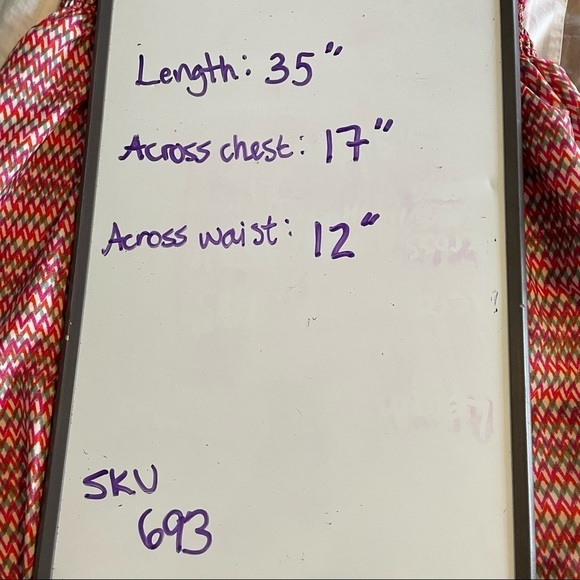 Length: 35"
Across chest: 17"
Across waist: 12"
SKU
693